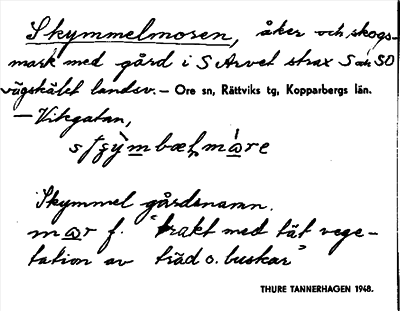 Skymmelmoren, åker och skogs-
mark med gård i S Arvet strax S och SO
vägskälet landsv. – Ore sn, Rättviks tg, Kopparbergs län.
– Vikgatan,
Skymmel gårdsnamn.
mar f. "trakt med tät vege-
tation av träd o. buskar"
THURE TANNERHAGEN 1948.